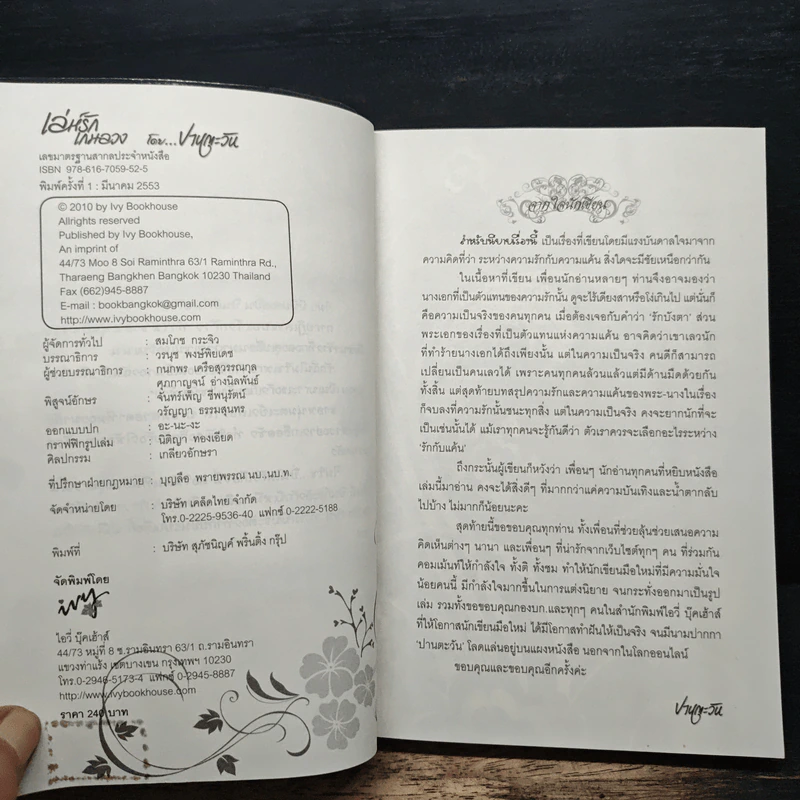 เล่ห์รัก
เกมลวง โดย...ปานตะวัน
เลขมาตรฐานสากลประจำหนังสือ
ISBN 978-616-7059-52-5
พิมพ์ครั้งที่ 1 : มีนาคม 2553
© 2010 by Ivy Bookhouse
Allrights reserved
Published by Ivy Bookhouse,
An imprint of
44/73 Moo 8 Soi Raminthra 63/1 Raminthra Rd.,
Tharaeng Bangkhen Bangkok 10230 Thailand
Fax (662)945-8887
E-mail : bookbangkok@gmail.com
http://www.ivybookhouse.com
ผู้จัดการทั่วไป : สมโภช กระจิว
บรรณาธิการ : วรนุช พงษ์พิยเดช
ผู้ช่วยบรรณาธิการ : กนกพร เครือสุวรรณกุล
ศุภกาญจน์ อ่างนิลพันธ์
พิสูจน์อักษร : จันทร์เพ็ญ ชีพนุรัตน์
วรัญญา ธรรมสุนทร
ออกแบบปก : อะ-นะ-งะ
กราฟฟิกรูปเล่ม : นิติญา ทองเอียด
ศิลปกรรม : เกลียวอักษรา
ที่ปรึกษาฝ่ายกฎหมาย : บุญลือ พรายพรรณ นบ.,นบ.ท.
จัดจำหน่ายโดย : บริษัท เคล็ดไทย จำกัด
โทร.0-2225-9536-40 แฟกซ์ 0-2222-5188
พิมพ์ที่ : บริษัท สุภัชนิญค์ พริ้นติ้ง กรุ๊ป
จัดพิมพ์โดย
ivy
ไอวี่ บุ๊คเฮ้าส์
44/73 หมู่ที่ 8 ซ.รามอินทรา 63/1 ถ.รามอินทรา
แขวงท่าแร้ง เขตบางเขน กรุงเทพฯ 10230
โทร.0-2946-5173-4 แฟกซ์ 0-2945-8887
http://www.ivybookhouse.com
ราคา 240 บาท
จากใจนักเขียน
สำหรับนิยายเรื่องนี้ เป็นเรื่องที่เขียนโดยมีแรงบันดาลใจมาจาก
ความคิดที่ว่า ระหว่างความรักกับความแค้น สิ่งใดจะมีชัยเหนือกว่ากัน
ในเนื้อหาที่เขียน เพื่อนนักอ่านหลายๆ ท่านจึงอาจมองว่า
นางเอกที่เป็นตัวแทนของความรักนั้น ดูจะไร้เดียงสาหรือโง่เกินไป แต่นั่นก็
คือความเป็นจริงของคนทุกคน เมื่อต้องเจอกับคำว่า 'รักบังตา' ส่วน
พระเอกของเรื่องที่เป็นตัวแทนแห่งความแค้น อาจคิดว่าเขาเลวนัก
ที่ทำร้ายนางเอกได้ถึงเพียงนั้น แต่ในความเป็นจริง คนดีก็สามารถ
เปลี่ยนเป็นคนเลวได้ เพราะคนทุกคนล้วนแล้วแต่มีด้านมืดด้วยกัน
ทั้งสิ้น แต่สุดท้ายบทสรุปความรักและความแค้นของพระ-นางในเรื่อง
ก็จบลงที่ความรักนั้นชนะทุกสิ่ง แต่ในความเป็นจริง คงจะยากนักที่จะ
เป็นเช่นนั้นได้ แม้เราทุกคนจะรู้กันดีว่า ตัวเราควรจะเลือกอะไรระหว่าง
'รักกับแค้น'
ถึงกระนั้นผู้เขียนก็หวังว่า เพื่อนๆ นักอ่านทุกคนที่หยิบหนังสือ
เล่มนี้มาอ่าน คงจะได้สิ่งดีๆ ที่มากกว่าแค่ความบันเทิงและน้ำตากลับ
ไปบ้าง ไม่มากก็น้อยนะคะ
สุดท้ายนี้ขอขอบคุณทุกท่าน ทั้งเพื่อนที่ช่วยลุ้นช่วยเสนอความ
คิดเห็นต่างๆ นานา และเพื่อนๆ ที่น่ารักจากเว็บไซต์ทุกๆ คน ที่ร่วมกัน
คอมเม้นท์ให้กำลังใจ ทั้งติ ทั้งชม ทำให้นักเขียนมือใหม่ที่มีความมั่นใจ
น้อยคนนี้ มีกำลังใจมากขึ้นในการแต่งนิยาย จนกระทั่งออกมาเป็นรูป
เล่ม รวมทั้งขอขอบคุณกองบก.และทุกๆ คนในสำนักพิมพ์ไอวี่ บุ๊คเฮ้าส์
ที่ให้โอกาสนักเขียนมือใหม่ ได้มีโอกาสทำฝันให้เป็นจริง จนมีนามปากกา
'ปานตะวัน' โลดแล่นอยู่บนแผงหนังสือ นอกจากในโลกออนไลน์
ขอบคุณและขอบคุณอีกครั้งค่ะ
ปานตะวัน